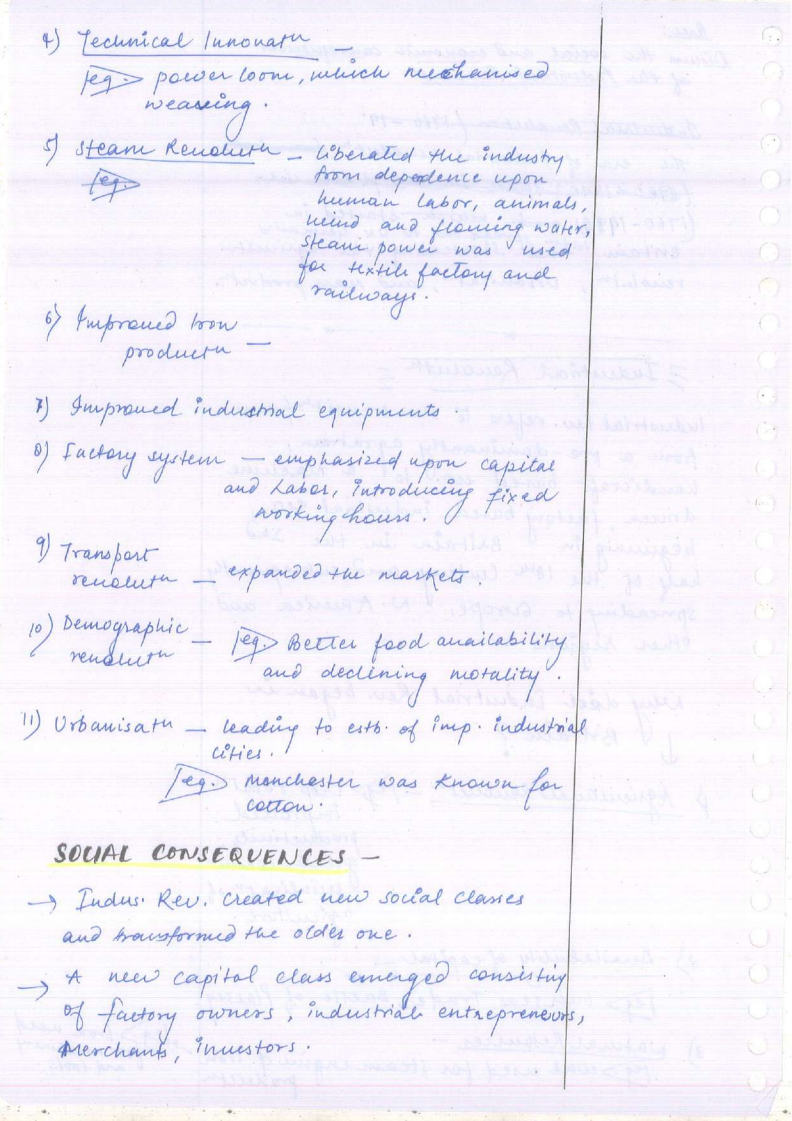 4) Technical Innovatn —
eg. power loom, which mechanised
weaving.
5) Steam Revolutn — liberated the industry
eg. from dependence upon
human labor, animals,
wind and flowing water,
steam power was used
for textile factory and
railways.
6) Improved Iron
productn —
7) Improved industrial equipments.
8) Factory system — emphasized upon capital
and Labor, introducing fixed
working hours.
9) Transport
revolutn — expanded the markets
10) Demographic
revolutn — eg. Better food availability
and declining motality.
11) Urbanisatn — leading to estb. of imp. industrial
cities.
eg. Manchester was known for
cotton.
SOCIAL CONSEQUENCES —
→ Indus. Rev. created new social classes
and transformed the older one.
→ A new capital class emerged consisting
of factory owners, industrial entrepreneurs,
Merchants, investors.